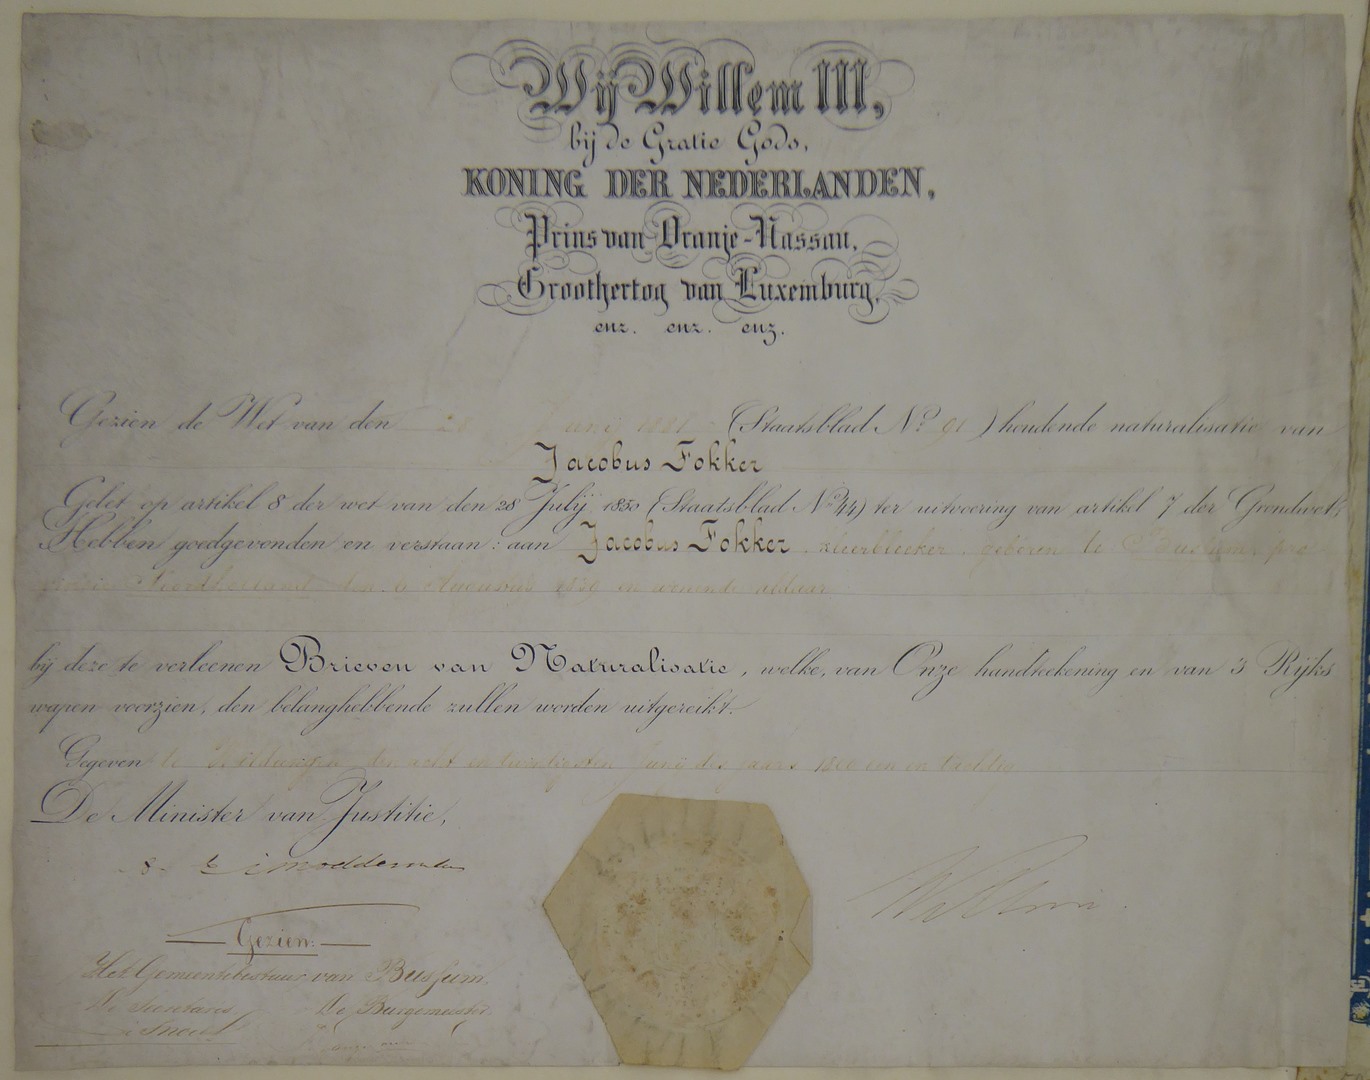 Wij Willem III,
bij de Gratie Gods,
KONING DER NEDERLANDEN,
Prins van Oranje-Nassau,
Groothertog van Luxemburg,
enz. enz. enz.
Gezien de Wet van den 28 Junij 1881 (Staatsblad No. 91) houdende naturalisatie van
Jacobus Fokker
Gelet op artikel 8 der wet van den 28 Julij 1850 (Staatsblad No. 44) ter uitvoering van artikel 7 der Grondwet,
Hebben goedgevonden en verstaan: aan Jacobus Fokker, kleerbleeker, geboren te Bussum, pro-
vincie Noordholland den 6 1859 en wonende aldaar
bij deze te verleenen Brieven van Naturalisatie, welke, van Onze handteekening en van 's Rijks
wapen voorzien, den belanghebbende zullen worden uitgereikt.
Gegeven te den acht en twintigsten Junij des jaars 1800 een en tachtig
De Minister van Justitie,
Willem
Gezien:
Het Gemeentebestuur van Bussum,
De Secretaris De Burgemeester